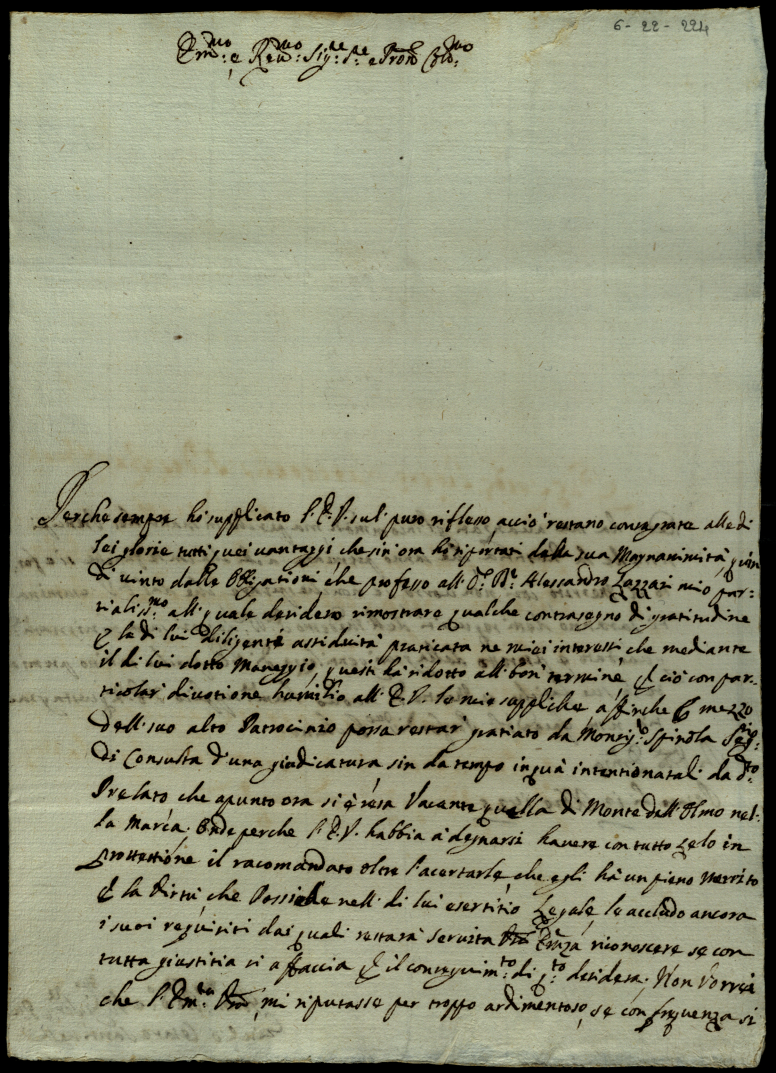 6-22-224
Em.mo e Rev.mo Sig.re S.re e Pron Col.mo
Perche sempre hò supplicato l'E.V. sul puro riflesso acciò restano consagrate alle di
lei glorie tutti quei vantaggi che sin'ora hò riportati dalla sua Magnanimità, quin
di vinto dalle Obligationi che professo all' D.r Alessandro Lazzari mio par-
tialiss.mo all' quale desidero rimostrare qualche contrasegno di gratitudine
p la di lui diligente assiduità praticata ne miei interessi che mediante
il di lui dotto Maneggio questi hà ridotto all' bon' termine, p ciò con par-
ticolar' divotione humilio all' E.V. le mie suppliche, affinche p mezzo
dell' suo alto Patrocinio possa restar' gratiato da Monsig.r Spinola Seg.rio
di Consulta d'una giudicatura sin da tempo in quà intentionatali da d.to
Prelato che apunto ora si è resa Vacante quella di Monte dell' Olmo nel-
la Marca. Onde perche l'E.V. habbia à degnarsi havere con tutto zelo in
prottettione il racomandato oltre l'acertarle, che egli hà un pieno merito
p la Virtù che Possiede nell' di lui esertitio Legale, le accludo ancora
i suoi requisiti dai quali restarà servita Emza riconoscere se con
tutta giustitia si affaccia p il conseguim.to di q.to desidera. Non vorrei
che l'Em.za mi riputasse per troppo ardimentoso, se con frequenza si